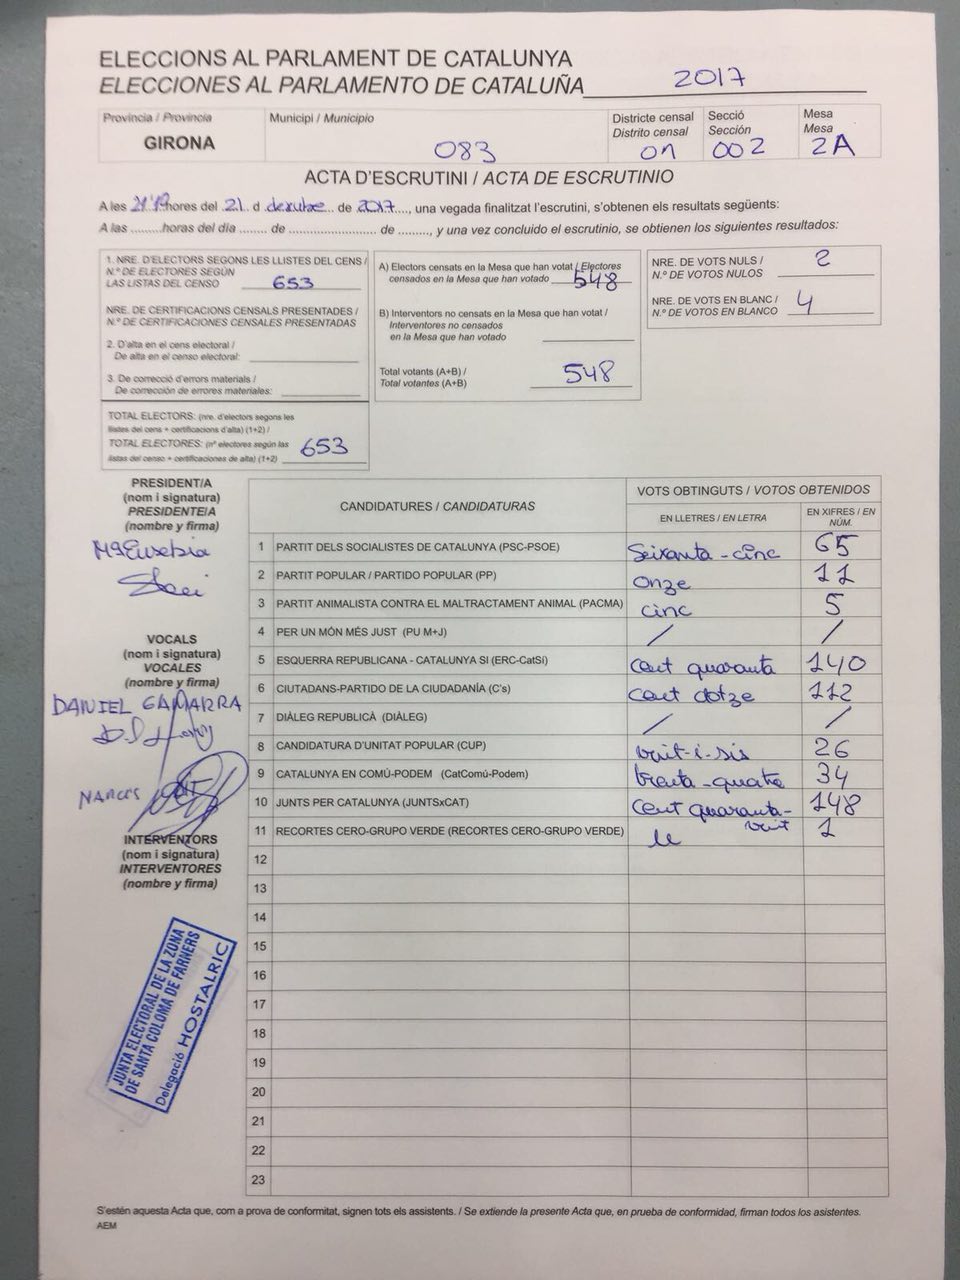 ELECCIONS AL PARLAMENT DE CATALUNYA
ELECCIONES AL PARLAMENTO DE CATALUÑA 2017
Provincia / Provincia
GIRONA
Municipi / Municipio
083
Districte censal
Distrito censal
01
Secció
Sección
002
Mesa
Mesa
2A
ACTA D'ESCRUTINI / ACTA DE ESCRUTINIO
A les hores del 21 d de 2017, una vegada finalitzat l'escrutini, s'obtenen els resultats següents:
A las .........horas del día ........ de .......................... de ........., y una vez concluido el escrutinio, se obtienen los siguientes resultados:
1. NRE. D'ELECTORS SEGONS LES LLISTES DEL CENS /
N.º DE ELECTORES SEGÚN
LAS LISTAS DEL CENSO 653
NRE. DE CERTIFICACIONS CENSALS PRESENTADES /
N.º DE CERTIFICACIONES CENSALES PRESENTADAS
2. D'alta en el cens electoral /
De alta en el censo electoral:
3. De correcció d'errors materials /
De corrección de errores materiales:
TOTAL ELECTORS: (nre. d'electors segons les
llistes del cens + certificacions d'alta) (1+2) /
TOTAL ELECTORES: (nº electores según las
listas del censo + certificaciones de alta) (1+2) 653
A) Electors censats en la Mesa que han votat / Electores
censados en la Mesa que han votado 548
B) Interventors no censats en la Mesa que han votat /
Interventores no censados
en la Mesa que han votado
Total votants (A+B) /
Total votantes (A+B) 548
NRE. DE VOTS NULS /
N.º DE VOTOS NULOS 2
NRE. DE VOTS EN BLANC /
N.º DE VOTOS EN BLANCO 4
PRESIDENT/A
(nom i signatura)
PRESIDENTE/A
(nombre y firma)
Mª Eusebia
VOCALS
(nom i signatura)
VOCALES
(nombre y firma)
DANIEL GAMARRA
NARCÍS
INTERVENTORS
(nom i signatura)
INTERVENTORES
(nombre y firma)
JUNTA ELECTORAL DE LA ZONA
DE SANTA COLOMA DE FARNERS
Delegació HOSTALRIC
CANDIDATURES / CANDIDATURAS
VOTS OBTINGUTS / VOTOS OBTENIDOS
EN LLETRES / EN LETRA
EN XIFRES / EN NÚM.
1 PARTIT DELS SOCIALISTES DE CATALUNYA (PSC-PSOE) Seixanta-cinc 65
2 PARTIT POPULAR / PARTIDO POPULAR (PP) onze 11
3 PARTIT ANIMALISTA CONTRA EL MALTRACTAMENT ANIMAL (PACMA) cinc 5
4 PER UN MÓN MÉS JUST (PU M+J) / /
5 ESQUERRA REPUBLICANA - CATALUNYA SI (ERC-CatSí) cent quaranta 140
6 CIUTADANS-PARTIDO DE LA CIUDADANÍA (C's) cent dotze 112
7 DIÀLEG REPUBLICÀ (DIÀLEG) / /
8 CANDIDATURA D'UNITAT POPULAR (CUP) vint-i-sis 26
9 CATALUNYA EN COMÚ-PODEM (CatComú-Podem) trenta-quatre 34
10 JUNTS PER CATALUNYA (JUNTSxCAT) cent quaranta-vuit 148
11 RECORTES CERO-GRUPO VERDE (RECORTES CERO-GRUPO VERDE) u 1
12
13
14
15
16
17
18
19
20
21
22
23
S'estén aquesta Acta que, com a prova de conformitat, signen tots els assistents. / Se extiende la presente Acta que, en prueba de conformidad, firman todos los asistentes.
AEM